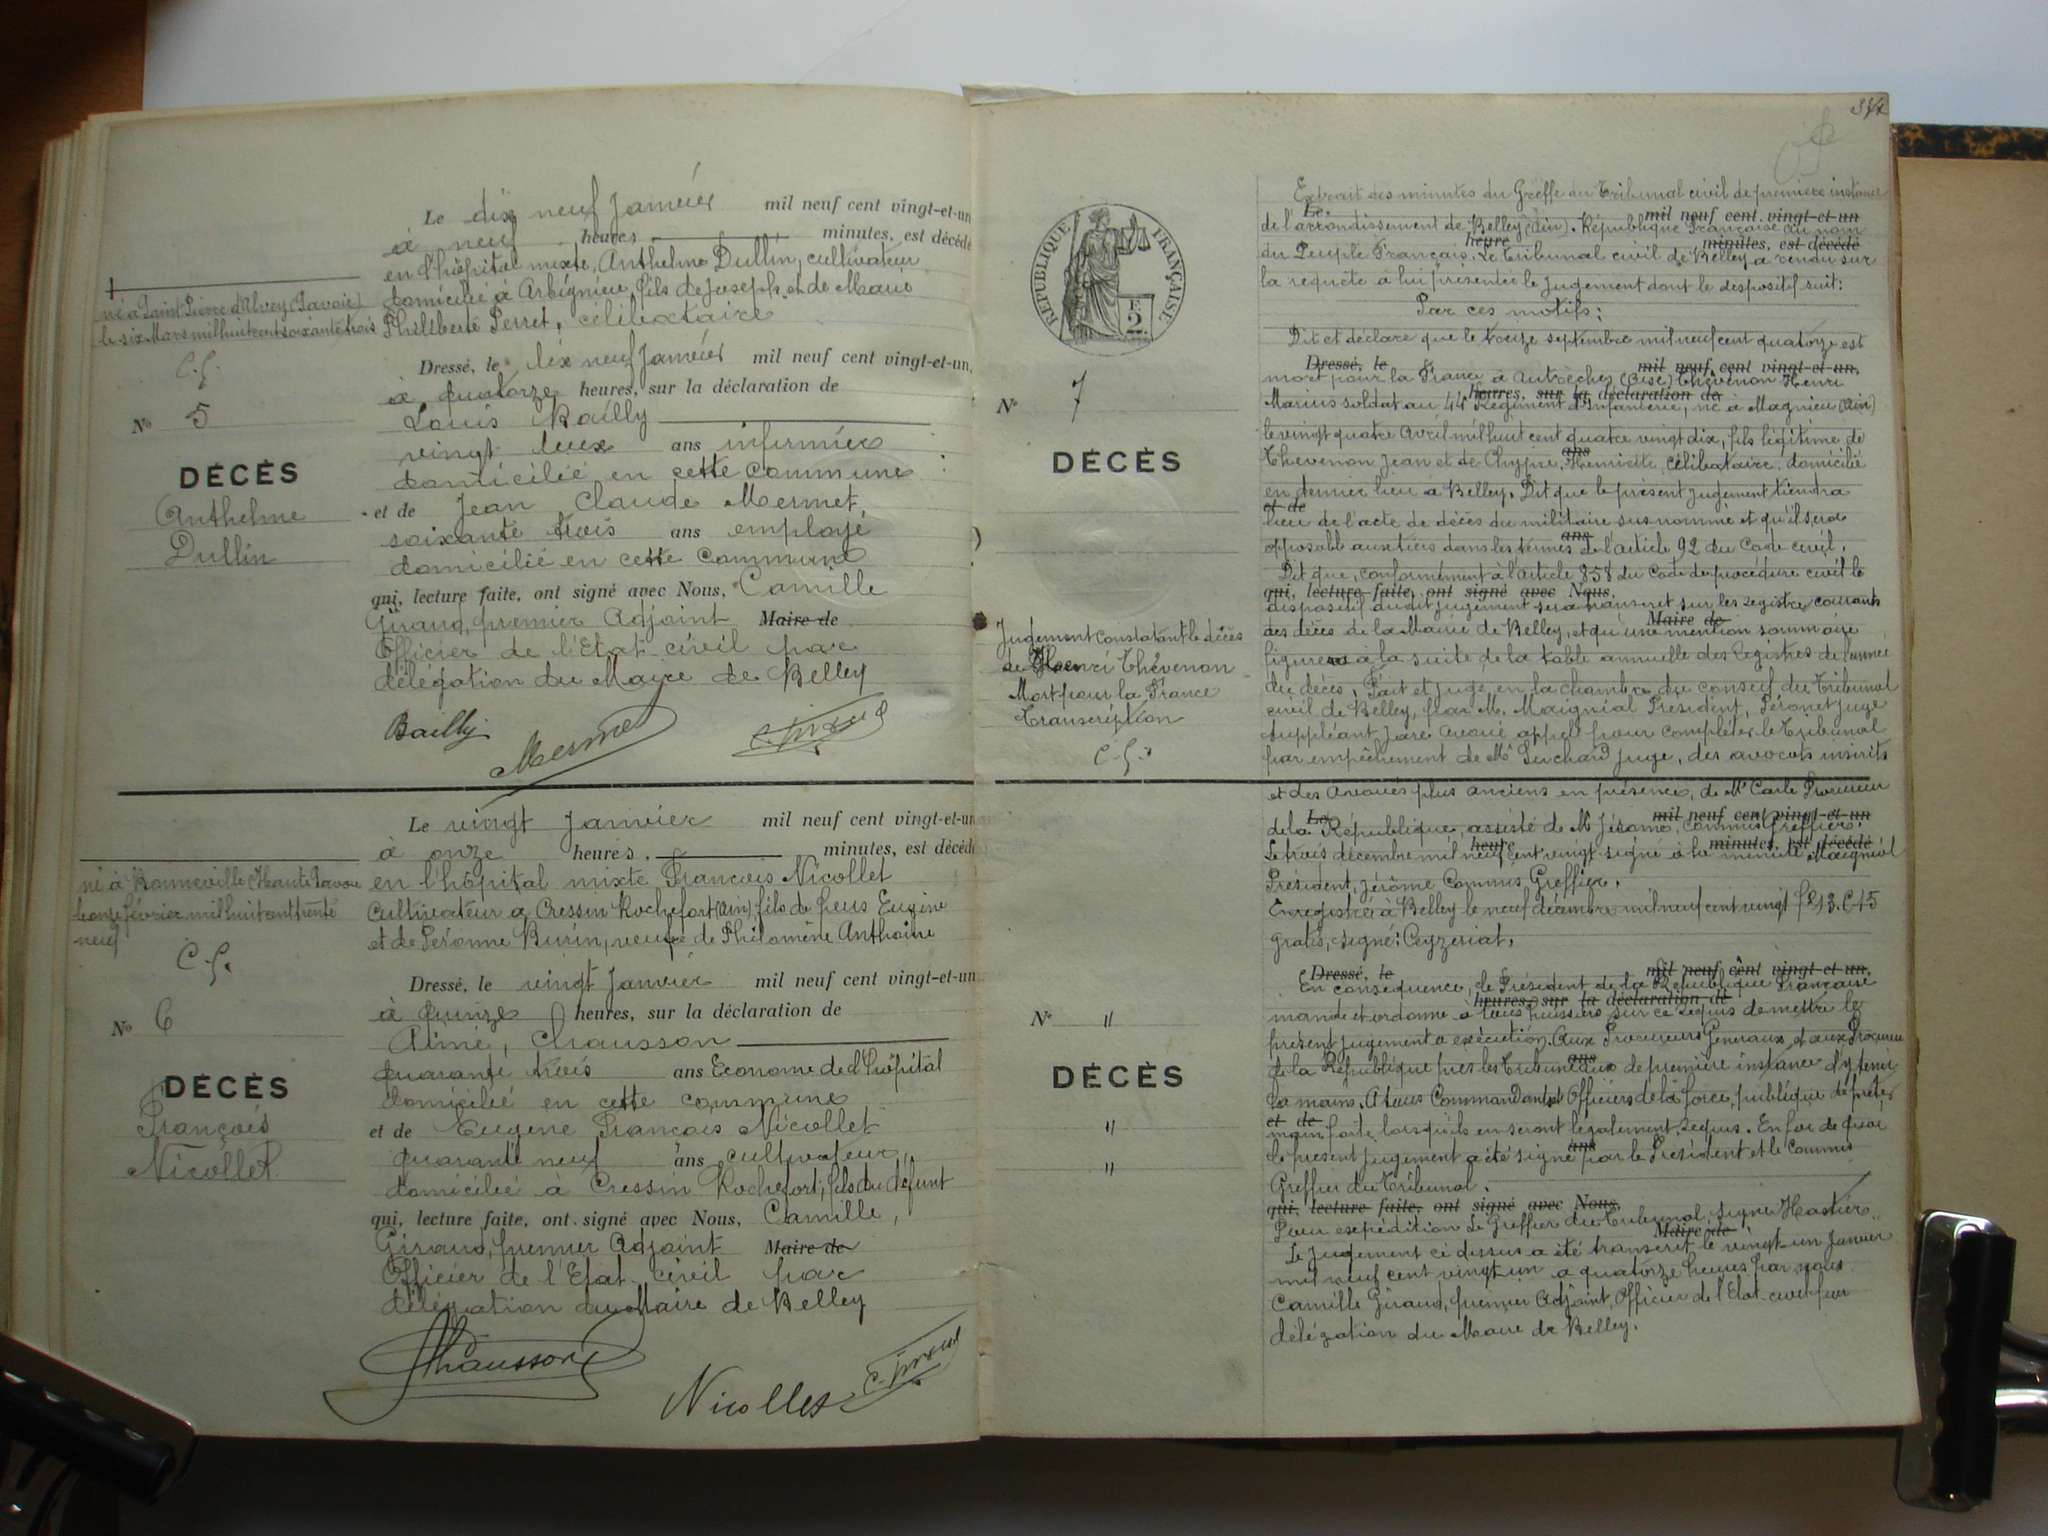 Le dix neuf Janvier mil neuf cent vingt-et-un
à neuf heures minutes, est décédé
en l'hôpital mixte, Anthelme Dullin, cultivateur
domicilié à Arbignieu, fils de Joseph et de Marie
Philiberte Perret, célibataire
né à Saint Pierre d'Alvey (Savoie)
le six Mars mil huit cent soixante trois
C.G.
Dressé, le dix neuf Janvier mil neuf cent vingt-et-un,
à quatorze heures, sur la déclaration de
Louis Bailly
vingt deux ans infirmier
domicilié en cette commune
et de Jean Claude Mermet,
soixante trois ans employé
domicilié en cette commune
qui, lecture faite, ont signé avec Nous, Camille
Giraud, premier Adjoint Maire de
Officier de l'Etat civil par
délégation du Maire de Belley
Nº 5
DÉCÈS
Anthelme
Dullin
Bailly Mermet C. Giraud
Le vingt Janvier mil neuf cent vingt-et-un
à onze heures, minutes, est décédé
en l'hôpital mixte François Nicollet
cultivateur à Cressin Rochefort (Ain) fils de feus Eugène
et de Péronne Burin, veuf de Philomène Anthoine
né à Bonneville Haute Savoie
le onze février mil huit cent trente
neuf
C.G.
Dressé, le vingt Janvier mil neuf cent vingt-et-un
à quinze heures, sur la déclaration de
Aimé, Chausson
quarante trois ans Econome de l'hôpital
domicilié en cette commune
et de Eugène François Nicollet
quarante neuf ans cultivateur,
domicilié à Cressin Rochefort, fils du défunt
qui, lecture faite, ont signé avec Nous, Camille,
Giraud, premier Adjoint Maire de
Officier de l'Etat civil par
délégation du Maire de Belley
Nº 6
DÉCÈS
François
Nicollet
Chausson Nicollet C. Giraud
374
RÉPUBLIQUE FRANÇAISE
Nº 7
DÉCÈS
Jugement constatant le décès
de Henri Thévenon
Mort pour la France
Transcription
C.G.
Extrait des minutes du Greffe du Tribunal civil de première instance
Le mil neuf cent vingt-et-un
de l'arrondissement de Belley (Ain). République Française au nom
heure minutes, est décédé
du Peuple Français. Le Tribunal civil de Belley a rendu sur
la requête à lui présentée le jugement dont le dispositif suit:
Par ces motifs:
Dit et déclare que le treize septembre mil neuf cent quatorze est
Dressé, le mil neuf cent vingt-et-un,
mort pour la France à Autrèches (Oise) Thévenon Henri
heures, sur la déclaration de
Marius soldat au 44 Régiment d'Infanterie, né à Magnieu (Ain)
le vingt quatre Avril mil huit cent quatre vingt dix, fils légitime de
ans
Thévenon Jean et de Chypre Henriette, célibataire, domicilié
en dernier lieu à Belley. Dit que le présent jugement tiendra
et de
lieu de l'acte de décès du militaire susnommé et qu'il sera
ans
opposable aux tiers dans les termes de l'article 92 du Code civil.
Dit que, conformément à l'article 858 du Code de procédure civil le
qui, lecture faite, ont signé avec Nous,
dispositif du dit jugement sera transcrit sur les registres courants
Maire de
des décès de la Mairie de Belley, et qu'une mention sommaire
figurera à la suite de la table annuelle des registres de l'année
du décès. Fait et jugé en la chambre du conseil du Tribunal
civil de Belley, par M. Maignial Président, Peronet Juge
suppléant, avoué appelé pour compléter le Tribunal
par empêchement de Mr Juge, des avocats inscrits
et des Avoués plus anciens en présence, de Mr Carle Procureur
Le mil neuf cent vingt-et-un
de la République, assisté de Mr Jérome, commis Greffier.
heure minutes, est décédé
Le trois décembre mil neuf cent vingt signé à la minute Maignial
Président, Jérôme Commis Greffier.
Enregistré à Belley le neuf décembre mil neuf cent vingt
gratis, signé: Ceyzeriat.
Dressé, le mil neuf cent vingt-et-un,
En conséquence, le Président de la République Française
heures, sur la déclaration de
mande et ordonne à tous huissiers sur ce requis de mettre le
présent jugement à exécution. Aux Procureurs Généraux, et aux Procureurs
ans
de la République près les Tribunaux de première instance d'y tenir
la main. A tous Commandants et Officiers de la force publique de prêter
et de
main forte lorsqu'ils en seront légalement requis. En foi de quoi
ans
le présent jugement a été signé par le Président et le Commis
Greffier du Tribunal.
qui, lecture faite, ont signé avec Nous,
Pour expédition le Greffier du Tribunal, signé Hastier.
Maire de
Le jugement ci dessus a été transcrit le vingt un Janvier
mil neuf cent vingt un à quatorze heures par nous
Camille Giraud, premier Adjoint, Officier de l'Etat civil par
délégation du Maire de Belley.
Nº "
DÉCÈS
"
"